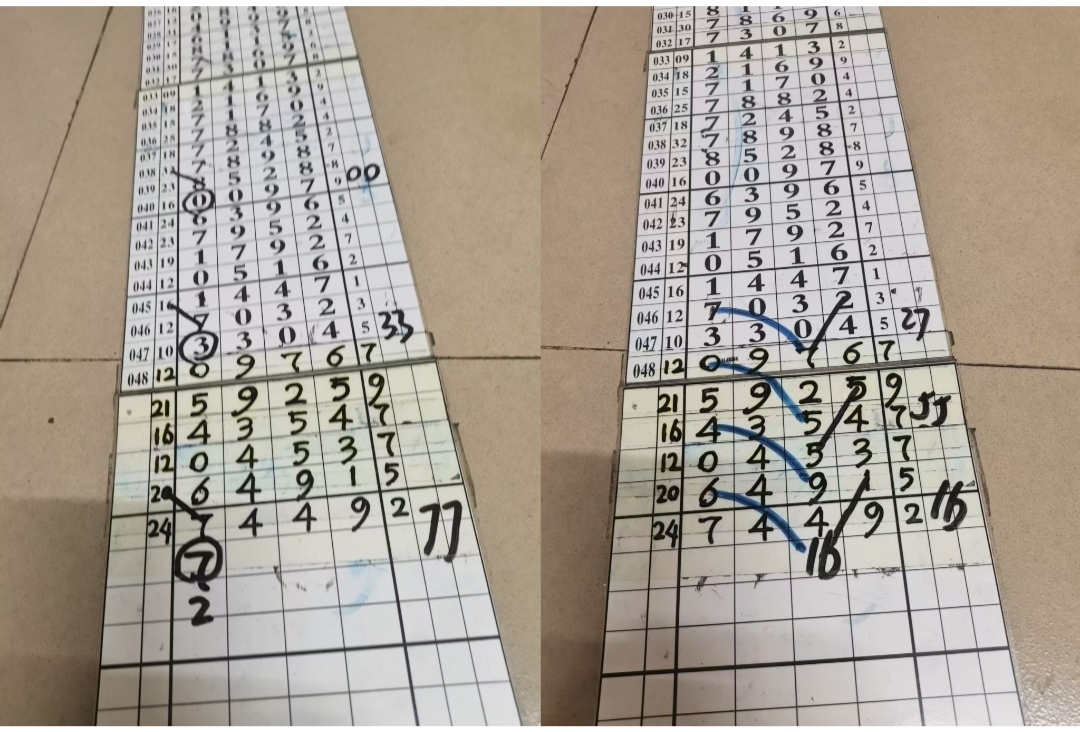 033 09
034 18
035 15
036 25
037 18
038 32
039 23 00
040 16 0 0 9 7 9
041 24 6 3 9 6 5
042 23 7 9 5 2 4
043 19 1 7 9 2 7
044 12 0 5 1 6 2
045 16 1 4 4 7 1
046 12 7 0 3 2 3
047 10 3 3 0 4 5 33
048 12 0 9 7 6 7
21 5 9 2 5 9
16 4 3 5 4 7
12 0 4 5 3 7
20 6 4 9 1 5
24 7 4 4 9 2 77
7
2
030 15 8 1
031 30 7 8 6 9 6
032 17 7 3 0 7 8
033 09 1 4 1 3 2
034 18 2 1 6 9 9
035 15 7 1 7 0 4
036 25 7 8 8 2 4
037 18 7 2 4 5 2
038 32 7 8 9 8 7
039 23 8 5 2 8 8
040 16 0 0 9 7 9
041 24 6 3 9 6 5
042 23 7 9 5 2 4
043 19 1 7 9 2 7
044 12 0 5 1 6 2
045 16 1 4 4 7 1
046 12 7 0 3 2 3
047 10 3 3 0 4 5 27
048 12 0 9 7 6 7
21 5 9 2 5 9
16 4 3 5 4 7 55
12 0 4 5 3 7
20 6 4 9 1 5
24 7 4 4 9 2 16
16